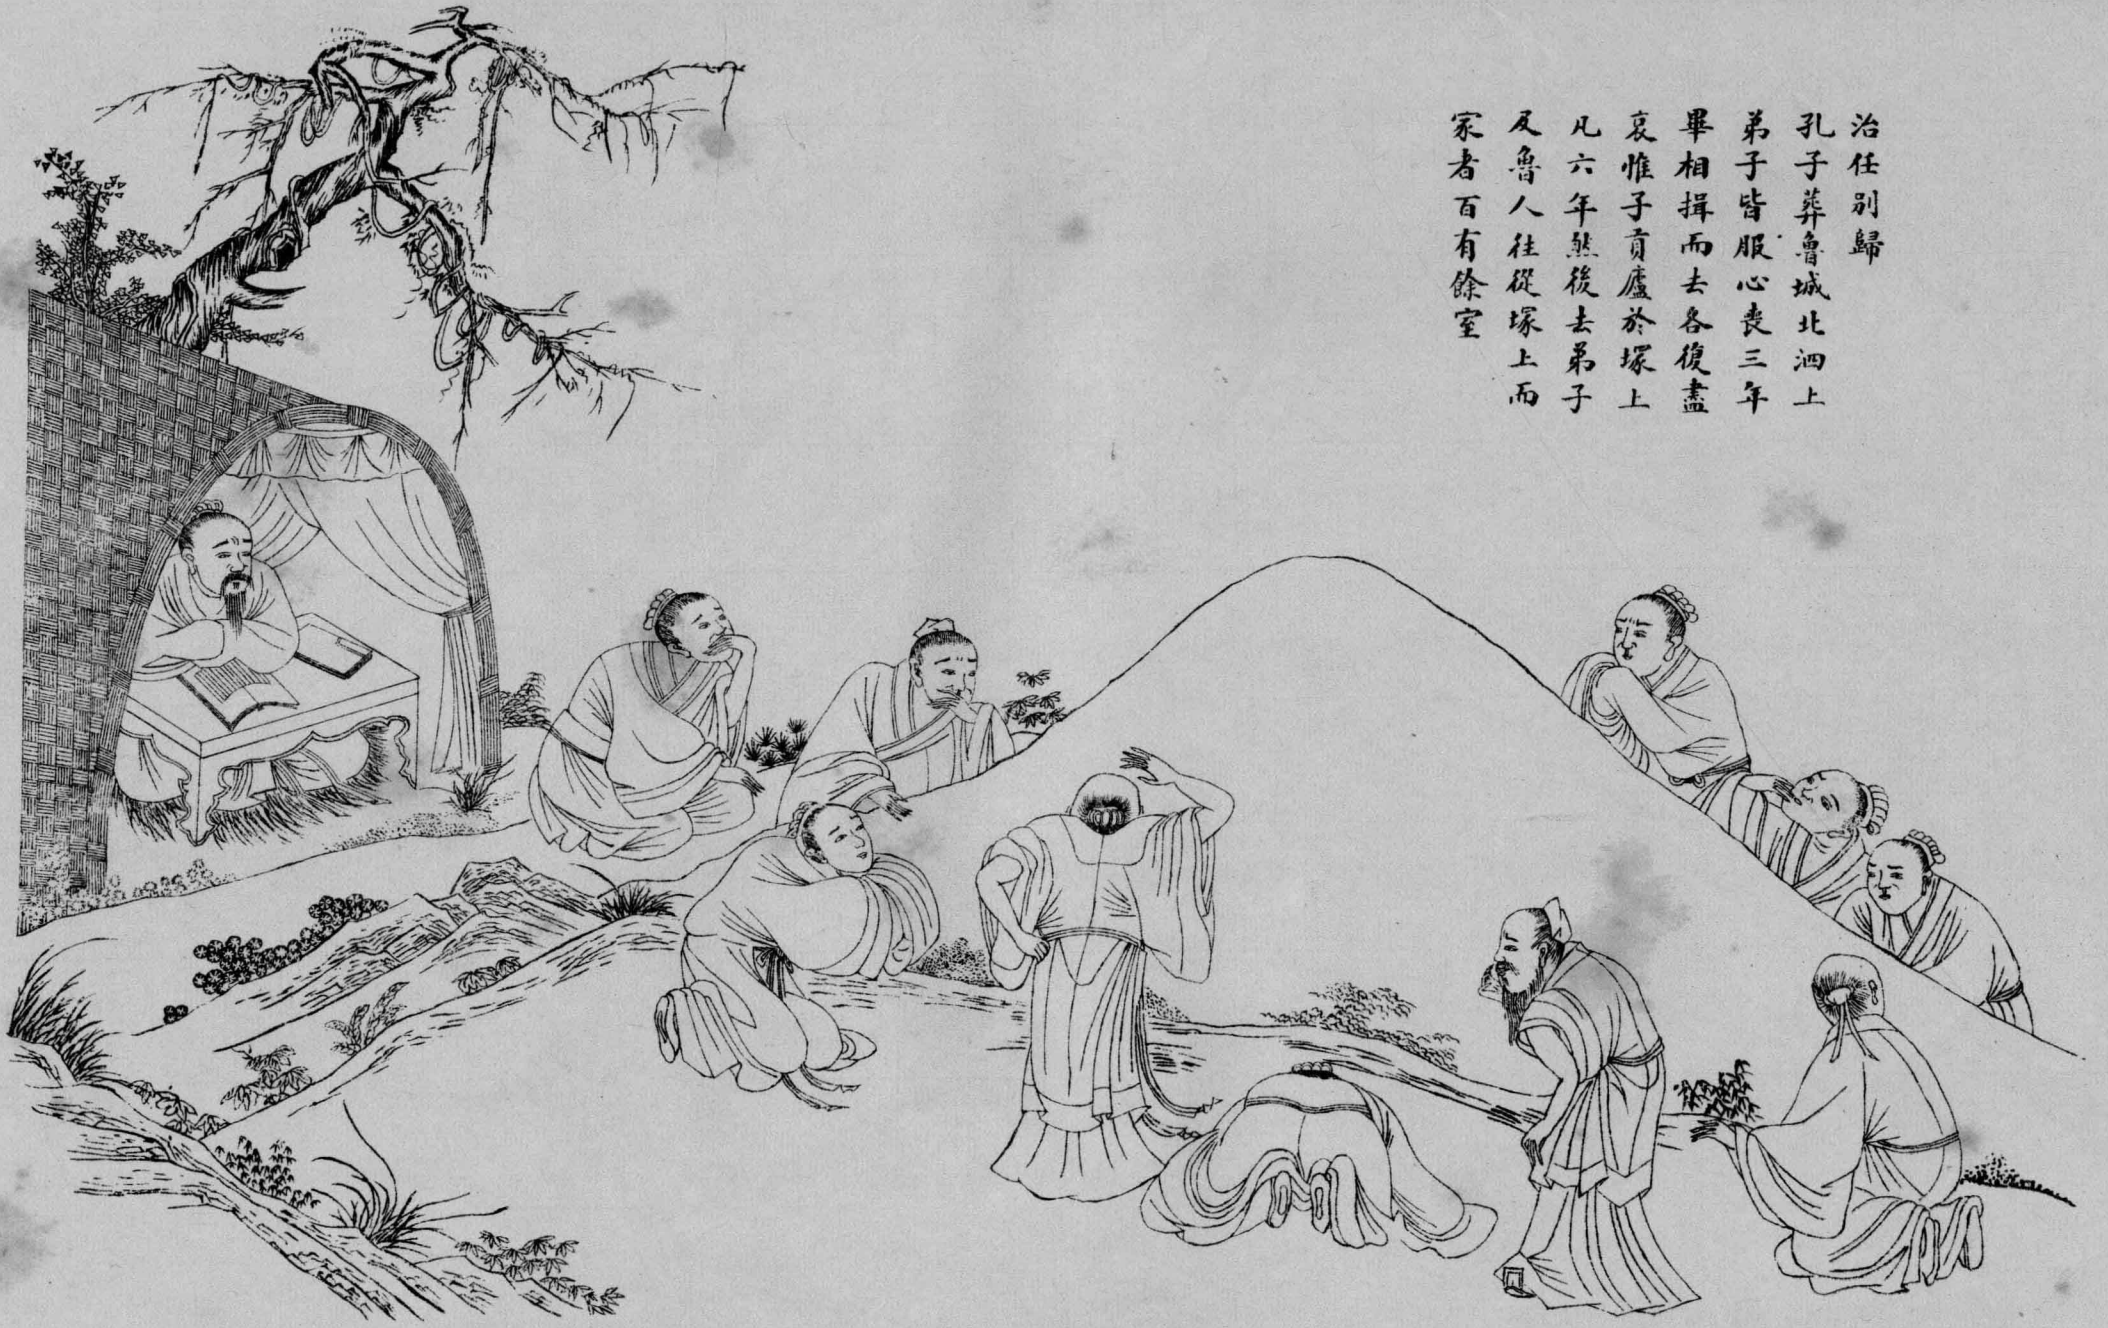 治任別歸
孔子葬魯城北泗上
弟子皆服心喪三年
畢相揖而去各復盡
哀惟子貢廬於塚上
凡六年然後去弟子
及魯人往從塚上而
家者百有餘室